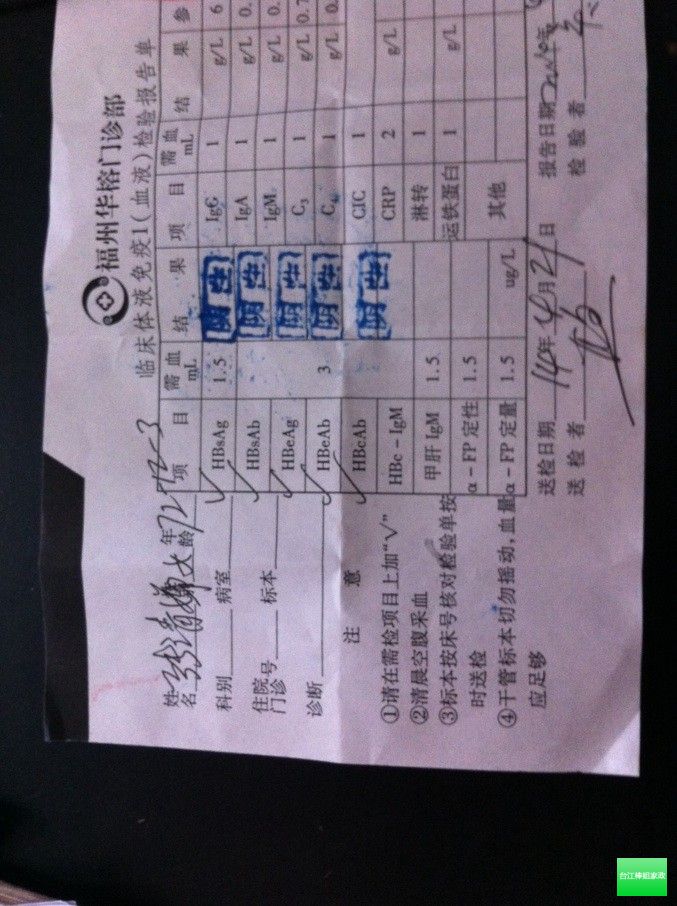 福州华榕门诊部
临床体液免疫1(血液)检验报告单
姓名 女 年龄
科别 病室
住院门诊号 标本
诊断
注意
①请在需检项目上加“√”
②清晨空腹采血
③标本按床号核对检验单按
时送检
④干管标本切勿摇动,血量
应足够
项目 需血mL 结果 项目 需血mL 结果 参
√ HBsAg 1.5 阴性 IgG 1 g/L 6
√ HBsAb 阴性 IgA 1 g/L 0.
√ HBeAg 阴性 IgM 1 g/L 0.
√ HBeAb 3 阴性 C3 1 g/L 0.7
√ HBcAb 阴性 C4 1 g/L 0.
HBc-IgM CIC 1
甲肝 IgM 1.5 CRP 2 g/L
α-FP定性 1.5 淋转 1
α-FP定量 1.5 ug/L 运铁蛋白 1 g/L
其他
送检日期 14年4月21日 报告日期
送检者 检验者
台江棒姐家政